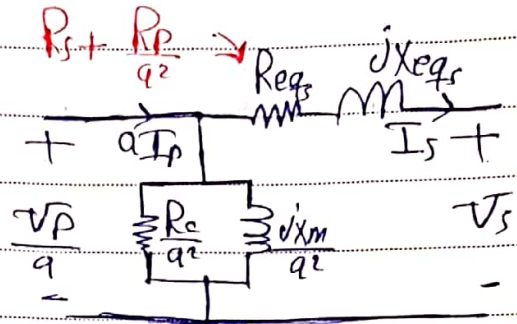 Rs + Rp/a²
Reqs
jXeqs
+
aIp
Is
+
Vp/a
Rc/a²
jXm/a²
Vs
-
-